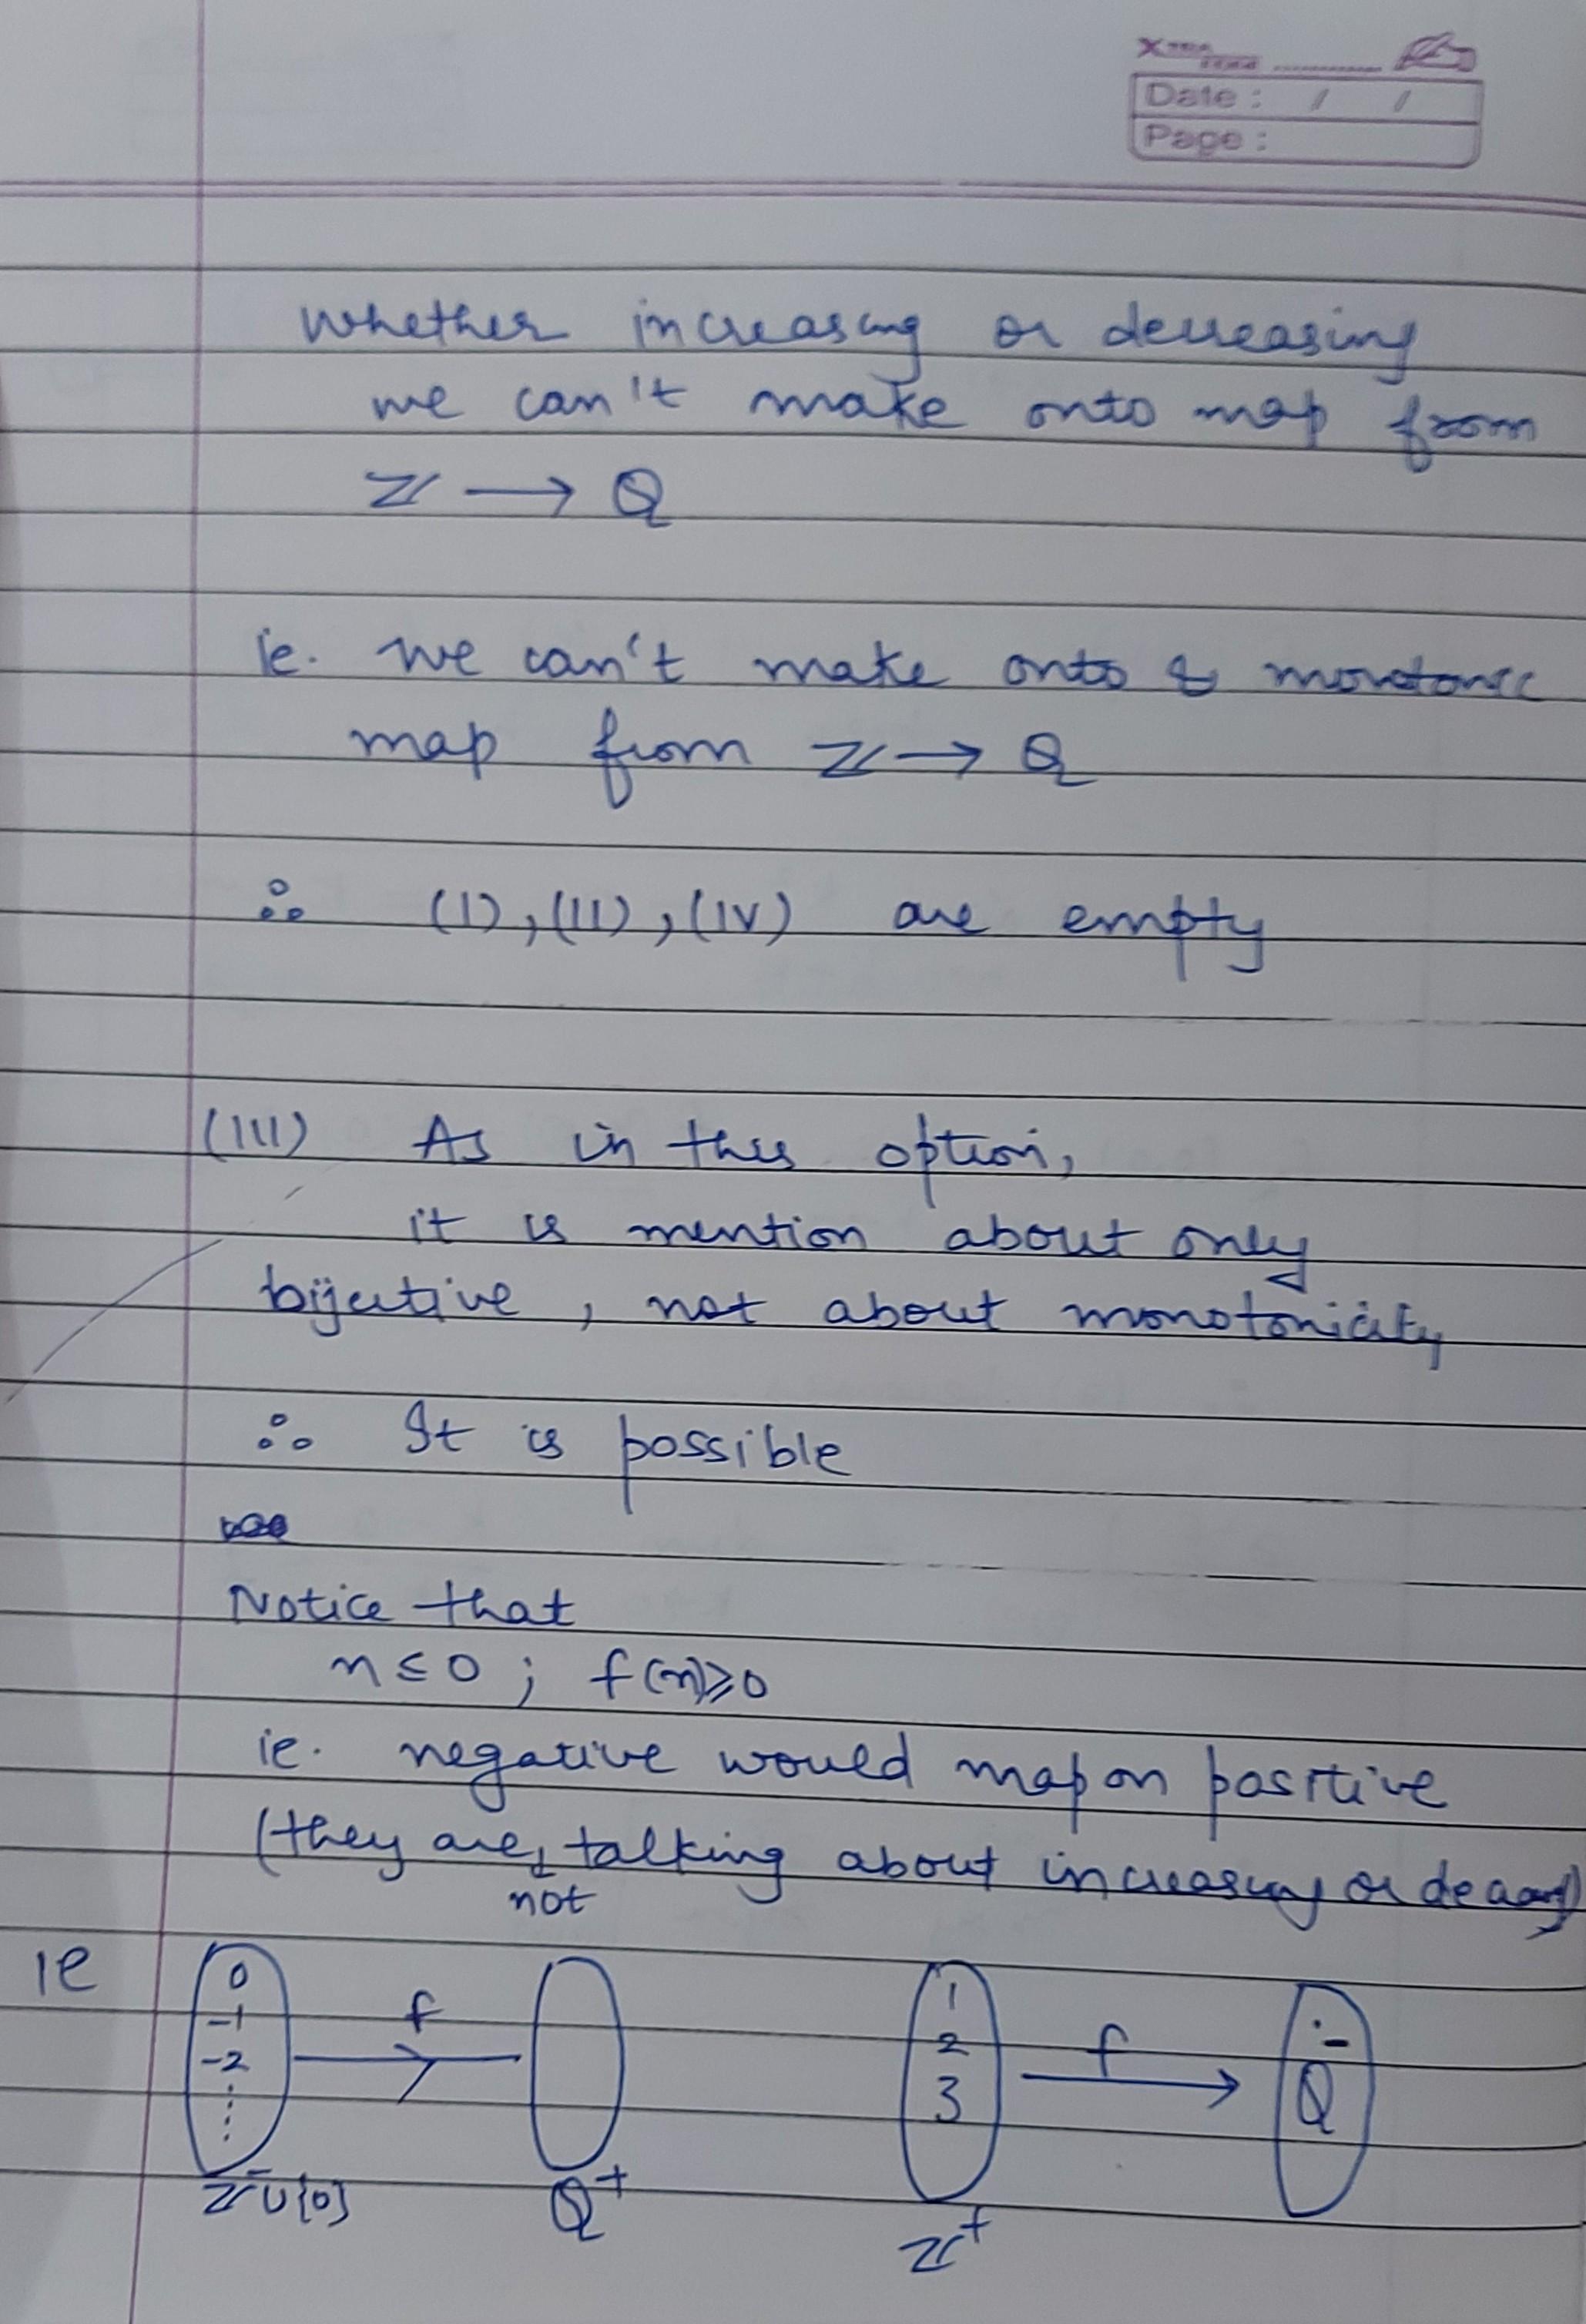 Date : / /
Page :
Whether increasing or decreasing
we can't make onto map from
ℤ → Q
ie. we can't make onto & monotonic
map from ℤ → Q
∴ (I), (II), (IV) are empty
(III) As in this option,
it is mention about only
bijective, not about monotonicity
∴ It is possible
Notice that
n ≤ 0 ; f(n) ≥ 0
ie. negative would map on positive
(they are not talking about increasing or
ie
0
-1
-2
f
ℤ⁻∪{0}
Q⁺
1
2
3
f
ℤ⁺
Q